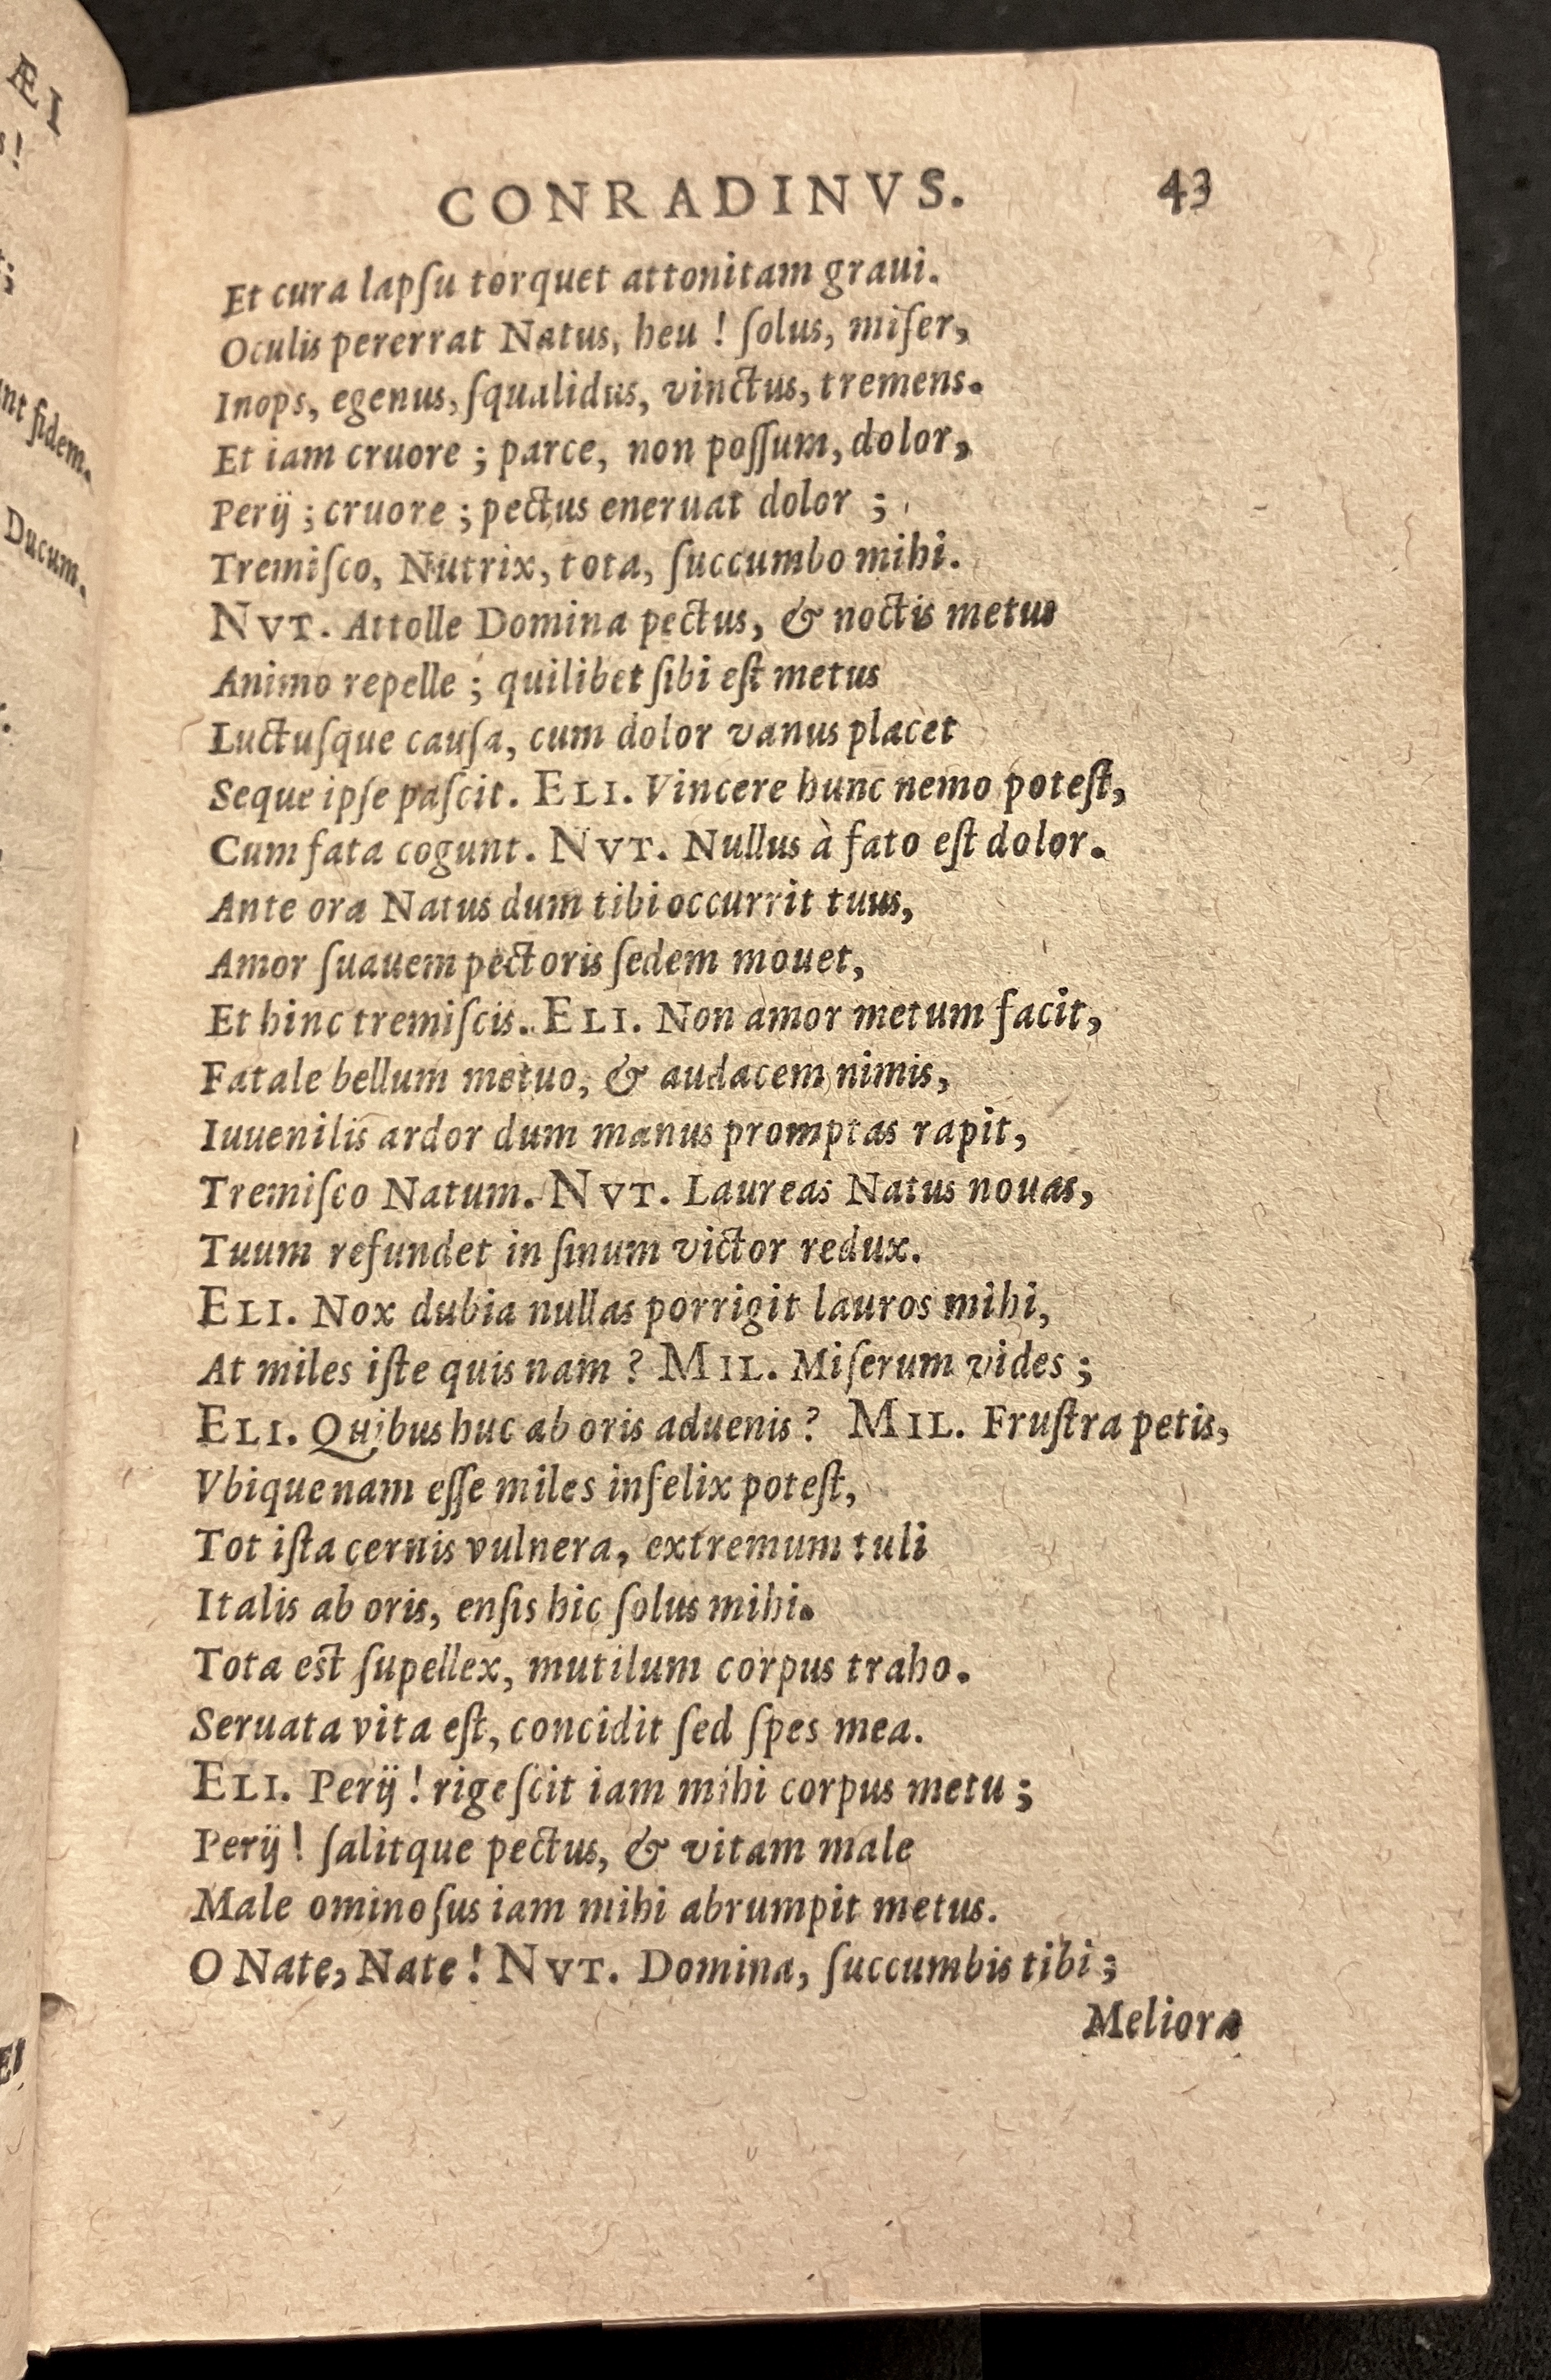 CONRADINVS. 43
Et cura lapſu torquet attonitam graui.
Oculis pererrat Natus, heu ! ſolus, miſer,
Inops, egenus, ſqualidus, vinctus, tremens.
Et iam cruore ; parce, non poſſum, dolor,
Perij ; cruore ; pectus eneruat dolor ;
Tremiſco, Nutrix, tota, ſuccumbo mihi.
NVT. Attolle Domina pectus, & noctis metus
Animo repelle ; quilibet ſibi eſt metus
Luctuſque cauſa, cum dolor vanus placet
Seque ipſe paſcit. ELI. Vincere hunc nemo poteſt,
Cum fata cogunt. NVT. Nullus à fato eſt dolor.
Ante ora Natus dum tibi occurrit tuus,
Amor ſuauem pectoris ſedem mouet,
Et hinc tremiſcis. ELI. Non amor metum facit,
Fatale bellum metuo, & audacem nimis,
Iuuenilis ardor dum manus promptas rapit,
Tremiſco Natum. NVT. Laureas Natus nouas,
Tuum refundet in ſinum victor redux.
ELI. Nox dubia nullas porrigit lauros mihi,
At miles iſte quis nam ? MIL. Miſerum vides ;
ELI. Quibus huc ab oris aduenis ? MIL. Fruſtra petis,
Vbique nam eſſe miles infelix poteſt,
Tot iſta cernis vulnera, extremum tuli
Italis ab oris, enſis hic ſolus mihi.
Tota eſt ſupellex, mutilum corpus traho.
Seruata vita eſt, concidit ſed ſpes mea.
ELI. Perij ! rigeſcit iam mihi corpus metu ;
Perij ! ſalitque pectus, & vitam male
Male ominoſus iam mihi abrumpit metus.
O Nate, Nate ! NVT. Domina, ſuccumbis tibi ;
Meliora
ÆI
s!
nt fidem.
Ducum.